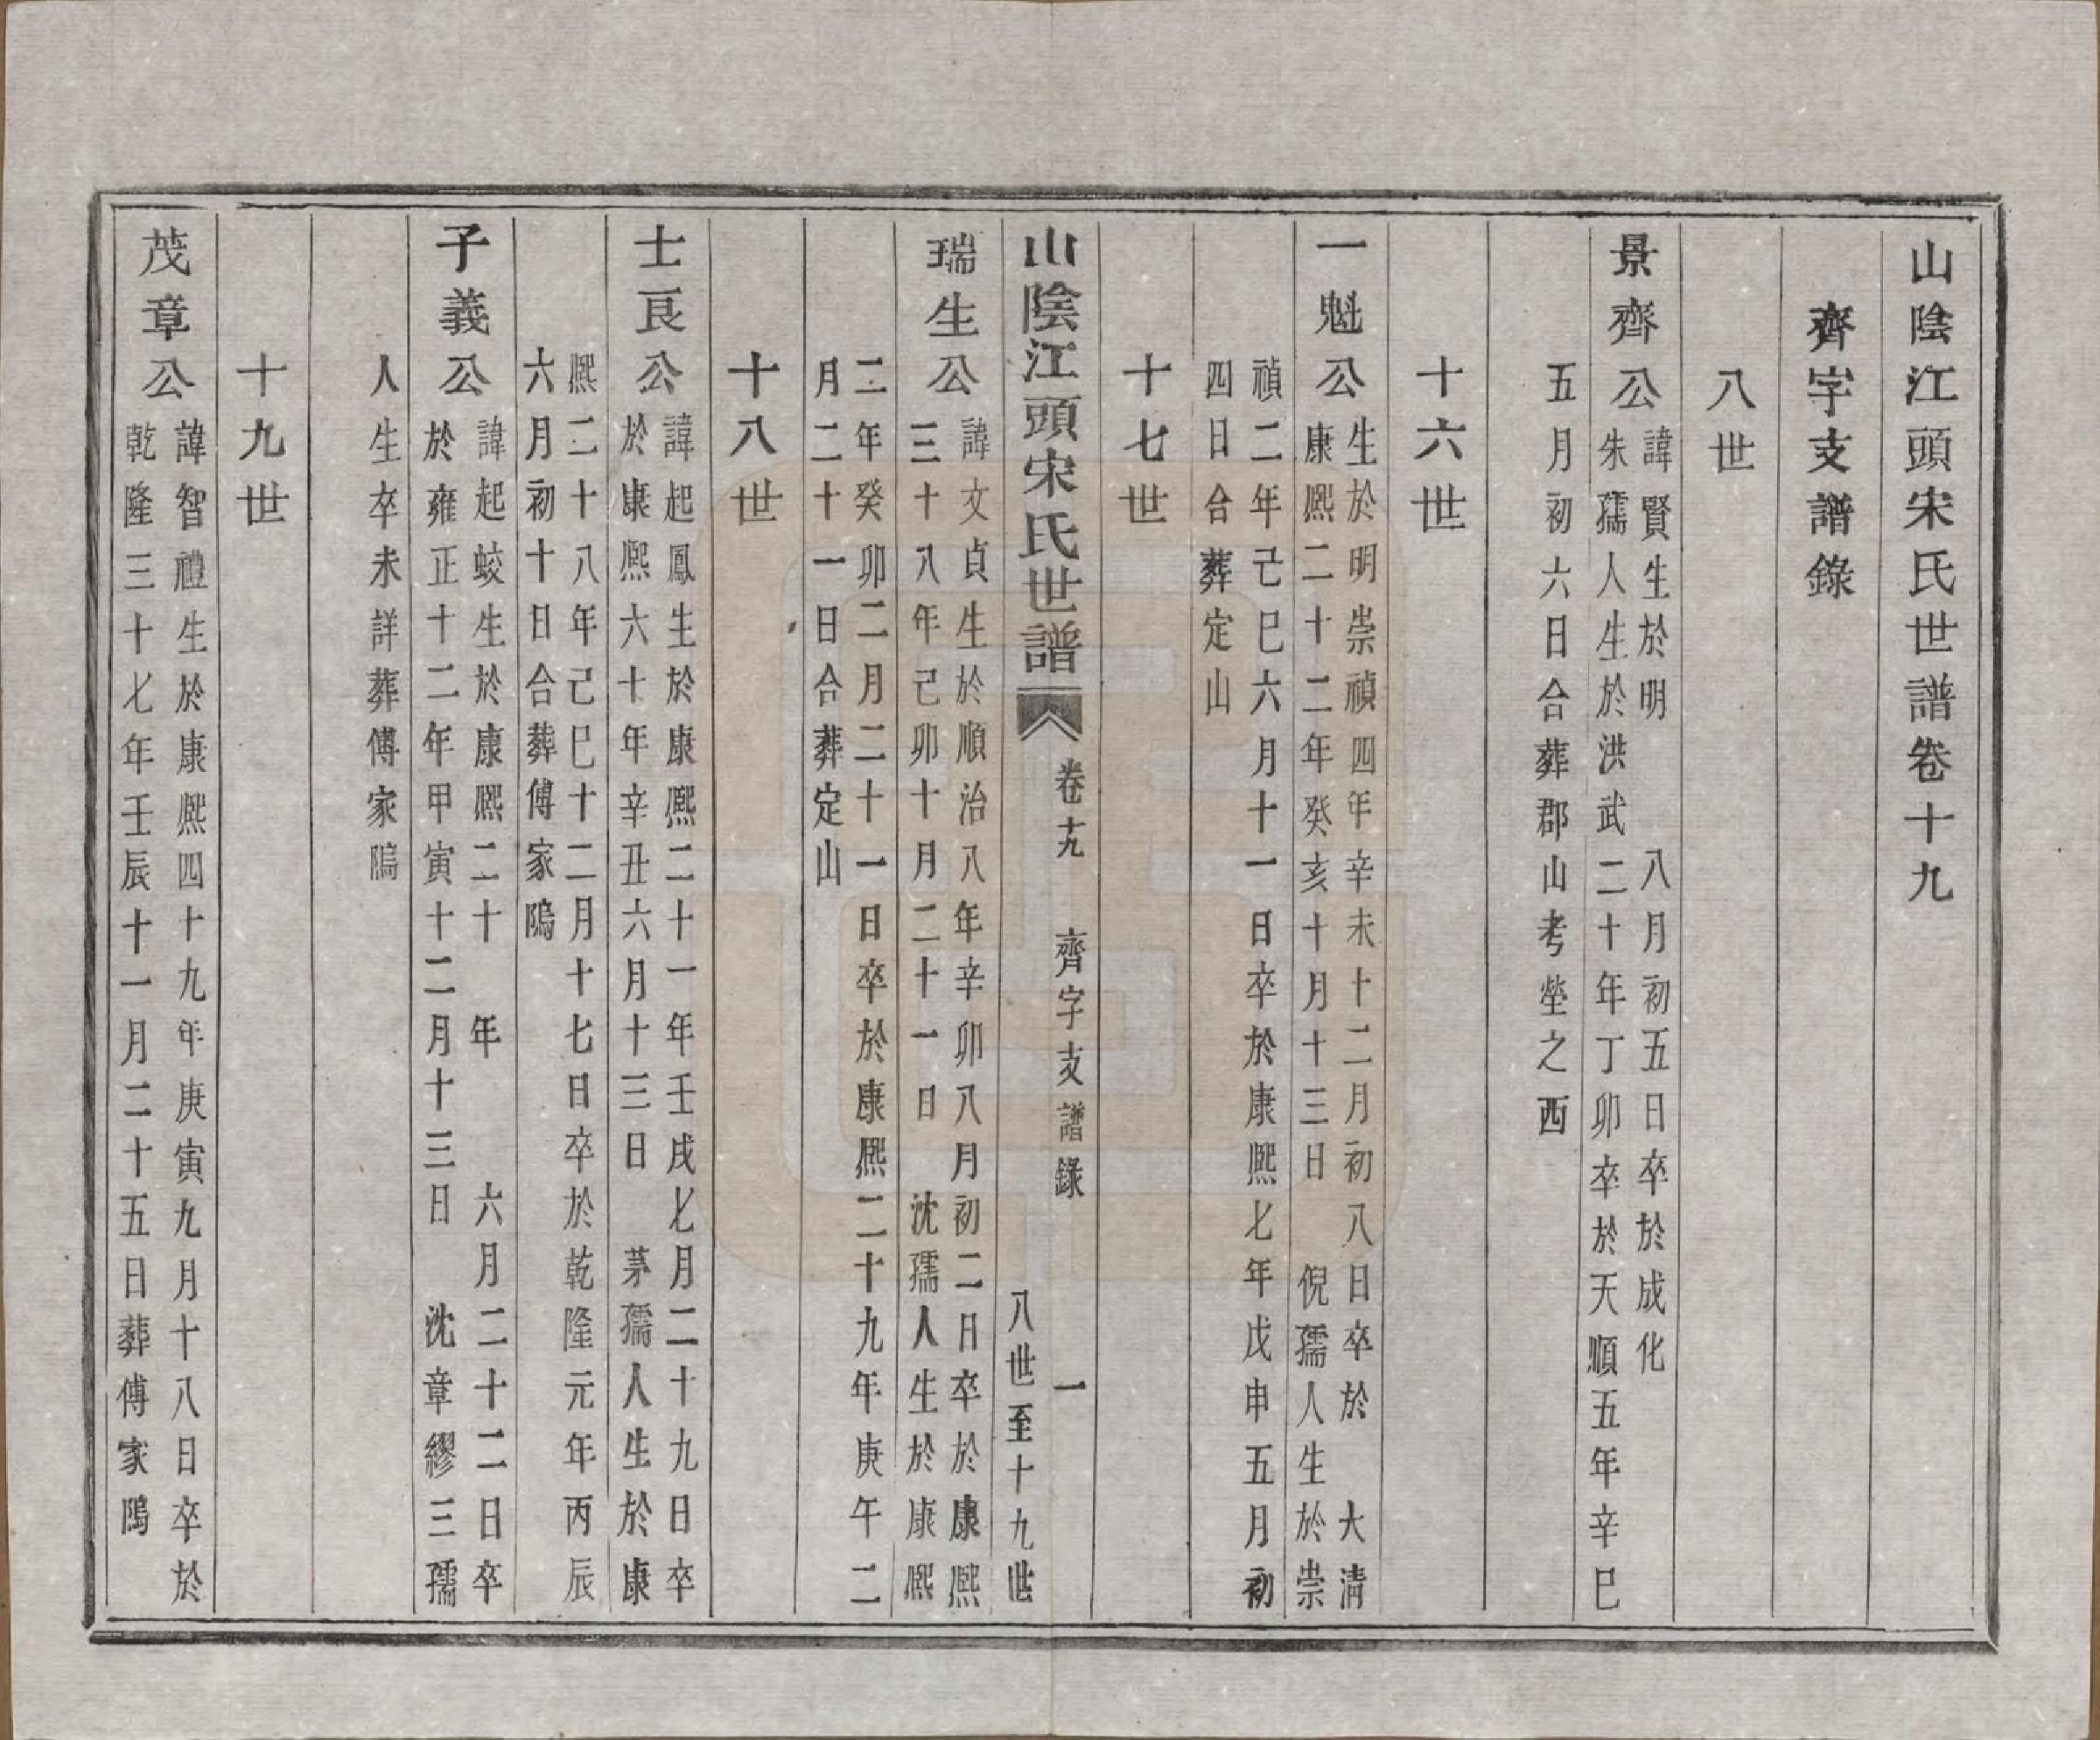 山陰江頭宋氏世譜卷十九
齊字支譜錄
八世
景齊公
諱賢生於明　八月初五日卒於成化
朱孺人生於洪武二十年丁卯卒於天順五年辛巳
五月初六日合葬郡山考塋之西
十六世
一魁公
生於明崇禎四年辛未十二月初八日卒於　大清
康熙二十二年癸亥十月十三日　倪孺人生於崇
禎二年己巳六月十一日卒於康熙七年戊申五月初
四日合葬定山
十七世
山陰江頭宋氏世譜
卷十九　齊字支譜錄　一
八世至十九世
瑞生公
諱文貞生於順治八年辛卯八月初二日卒於康熙
三十八年己卯十月二十一日　沈孺人生於康熙
二年癸卯二月二十一日卒於康熙二十九年庚午二
月二十一日合葬定山
十八世
士良公
諱起鳳生於康熙二十一年壬戌七月二十九日卒
於康熙六十年辛丑六月十三日　茅孺人生於康
熙二十八年己巳十二月十七日卒於乾隆元年丙辰
六月初十日合葬傅家隝
子義公
諱起蛟生於康熙二十　年　六月二十二日卒
於雍正十二年甲寅十二月十三日　沈章繆三孺
人生卒未詳葬傅家隝
十九世
茂章公
諱智禮生於康熙四十九年庚寅九月十八日卒於
乾隆三十七年壬辰十一月二十五日葬傅家隝